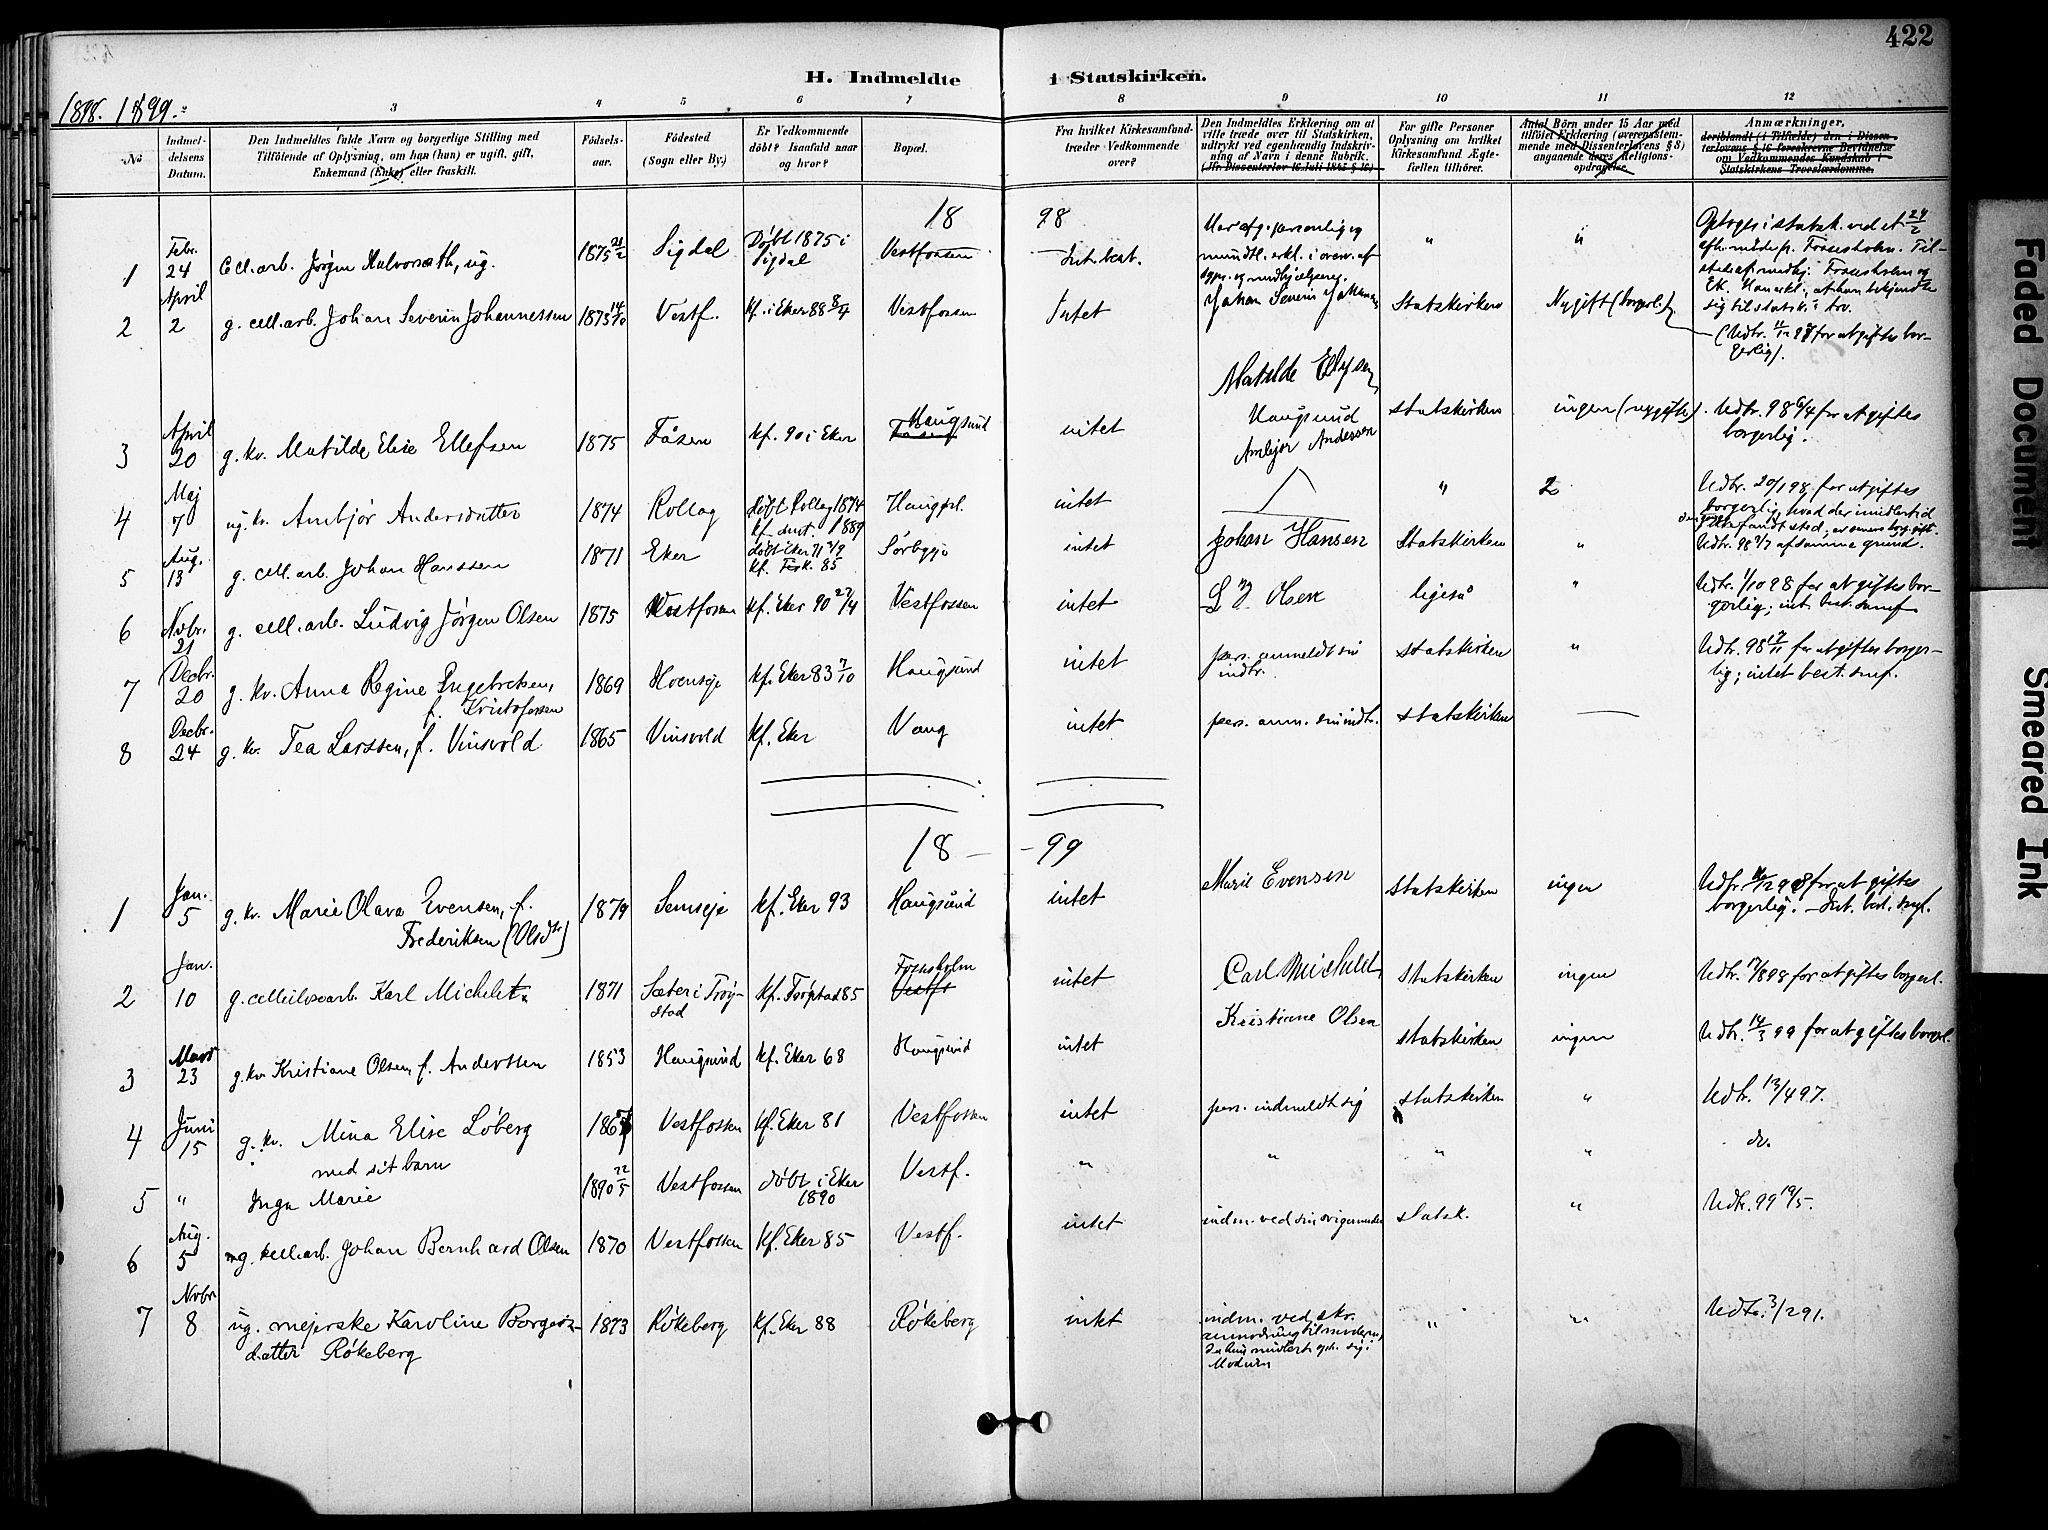 422
H. Indmeldte i Statskirken.
1898. 1899.
3 4 5 6 7 8 9 10 11 12
No
Indmel-
delsens
Datum.
Den Indmeldtes fulde Navn og borgerlige Stilling med
Tilföiende af Oplysning, om han (hun) er ugift, gift,
Enkemand (Enke) eller fraskilt.
Födsels-
aar.
Födested
(Sogn eller By.)
Er Vedkommende
döbt? Isaafald naar
og hvor?
Bopæl.
Fra hvilket Kirkesamfund-
træder Vedkommende
over?
Den Indmeldtes Erklæring om at
ville træde over til Statskirken,
udtrykt ved egenhændig Indskriv-
ning af Navn i denne Rubrik.
(Jfr. Dissenterlov 16 Juli 1845 § 16)
For gifte Personer
Oplysning om hvilket
Kirkesamfund Ægte-
fællen tilhörer.
Antal Börn under 15 Aar med
tilföiet Erklæring (overensstem-
mende med Dissenterlovens § 8)
angaaende deres Religions-
opdragelse.
Anmærkninger,
deriblandt (i Tilfælde) den i Dissen-
terlovens § 16 foreskrevne Bevidnelse
om Vedkommendes Kundskab i
Statskirkens Troeslærdomme.
18 98
1 Febr. 24 Cell.arb. Jørgen Halvorseth, ug. 1875 Sigdal Døbt 1875 i Sigdal Vestfossen Int. best. "
2 April 2 g. cell.arb. Johan Severin Johannessen 1873 14/10 Vestf. kf. i Eker 88 8/4 Vestfossen Intet Johan Severin Statskirken Nygift (borgerl.)
(Udtr. for at giftes bor-
gerlig).
3 April 20 g. kv. Matilde Elise Ellefsen 1875 Fåsen kf. 90 i Eker Haugsund intet Matilde Haugsund statskirken ingen Udtr. 98 6/4 for at giftes
borgerlig.
4 Maj 7 ug. kv. Ambjør Andersdatter 1874 Rollag Døbt Rollag 1874 kf. 1889 intet Ambjør Andersen " 2 Udtr. 20/1 98 for at giftes
borgerlig, hvad der imidlertid
5 Aug. 13 g. cell.arb. Johan Hanssen 1871 Eker døbt Eker 71 kf. 85 intet Johan Hansen Statskirken " Udtr. 98 af samme grund.
6 Novbr. 21 g. cell.arb. Ludvig Jørgen Olsen 1875 Vestfossen kf. Eker 90 27/4 Vestfossen intet ligeså " Udtr. 1/10 98 for at giftes bor-
gerlig; int. best. samf.
7 Decbr. 20 g. kv. Anna Regine Engebretsen,
f. Kristofersen 1869 Hoenseje kf. Eker 83 7/10 Haugsund intet pers. anmeldt sin
indtr. statskirken " Udtr. 98 for at giftes borger-
lig; intet best. smf.
8 Decbr. 24 g. kv. Tea Larssen, f. Vinsvold 1865 Vinsvold kf. Eker Vang intet pers. anm. sin indtr. statskirken
18 — 99
1 Jan. 5 g. kv. Marie Olava Evensen, f.
Frederiksen (Olsdtr) 1879 Semseje kf. Eker 93 Haugsund intet Marie Evensen Statskirken ingen Udtr. for at giftes
borgerlig. — Int. best. smf.
2 Jan. 10 g. Karl Michelet 1871 Sæter i Trøg-
stad 85 Fossesholm Vestfos intet Carl Michelet statskirken ingen Udtr. 7/8 98 for at giftes borgerl.
3 Mars 23 g. kv Kristiane Olsen, f. Anderssen 1853 Haugsund kf. Eker 68 Haugsund intet Kristiane Olsen statskirken ingen Udtr. 99 for at giftes borgerl.
4 Juni 15 g. kv. Mina Elise Løberg Vestfossen kf. Eker 81 Vestfossen intet pers. indmeldt sig statskirken " Udtr. 13/4 97.
med sit barn
5 " Inga Marie 1890 22/5 Vestfossen døbt i Eker
1890 Vestf. " " " " do.
6 Aug. 5 g. cell.arb. Johan Bernhard Olsen 1870 Vestfossen kf. Eker 85 Vestf. intet indm. ved sin svigermoder statsk. " Udtr. 99 19/5.
7 Novbr 8 ug. mejerske Karoline Borgers-
datter Røkeberg 1873 Røkeberg kf. Eker 88 Røkeberg intet indm. ved skr. " " Udtr. 3/2 91.
Faded Document
Smeared Ink